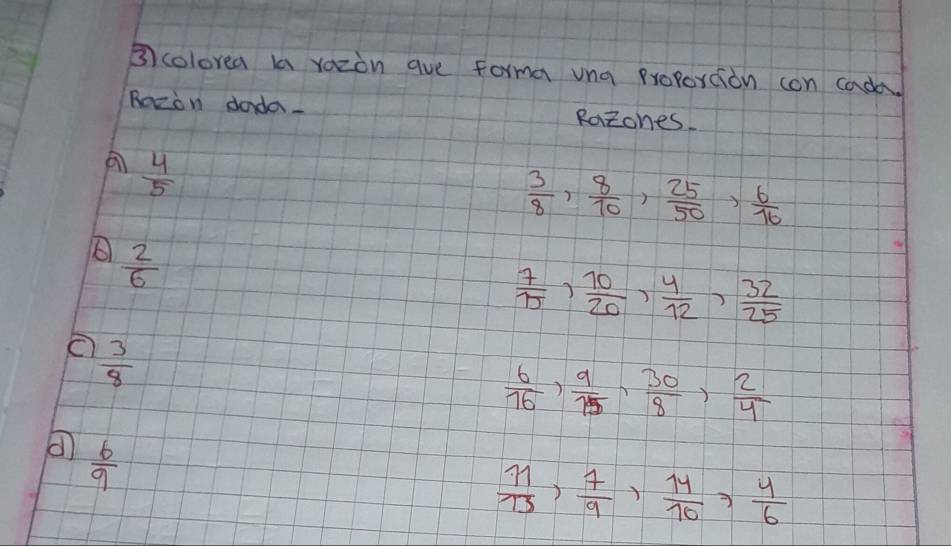 3) colorea la razòn que forma una proporción con cada
Razòn dada-
Razones-
a) 4/5 3/8, 8/10, 25/50, 6/16
b) 2/6 7/15, 10/20, 4/12, 32/25
c) 3/8 6/16, 9/15, 30/8, 2/4
d) 6/9 11/13, 7/9, 14/10, 4/6